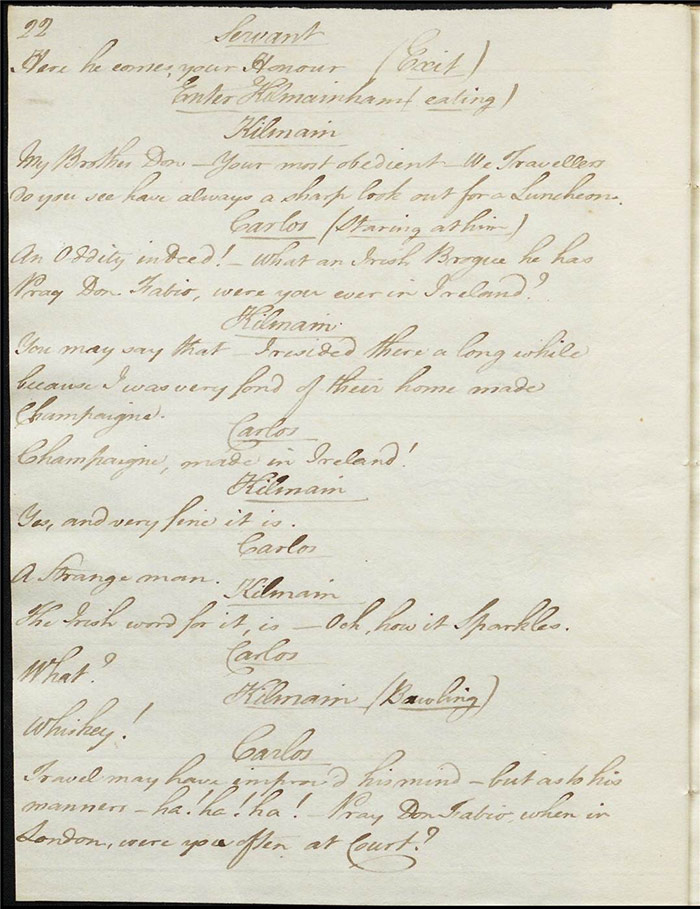 22
Servant
Here he comes, your Honour (Exit)
Enter Kilmainham (eating)
Kilmain
My Brother Don — Your most obedient — We Travellers
do you see have always a sharp look out for a Luncheon.
Carlos (Staring at him)
An Oddity indeed! — What an Irish Brogue he has
Pray Don Fabio, were you ever in Ireland?
Kilmain
You may say that — I resided there a long while
because I was very fond of their home made
Champaigne.
Carlos
Champaigne, made in Ireland!
Kilmain
Yes, and very fine it is.
Carlos
A Strange man.
Kilmain
The Irish word for it, is — Och, how it Sparkles.
Carlos
What?
Kilmain (Bawling)
Whiskey!
Carlos
Travel may have emprov'd his mind — but as to his
manners — ha! ha! ha! — Pray Don Fabio, when in
London, were you often at Court?